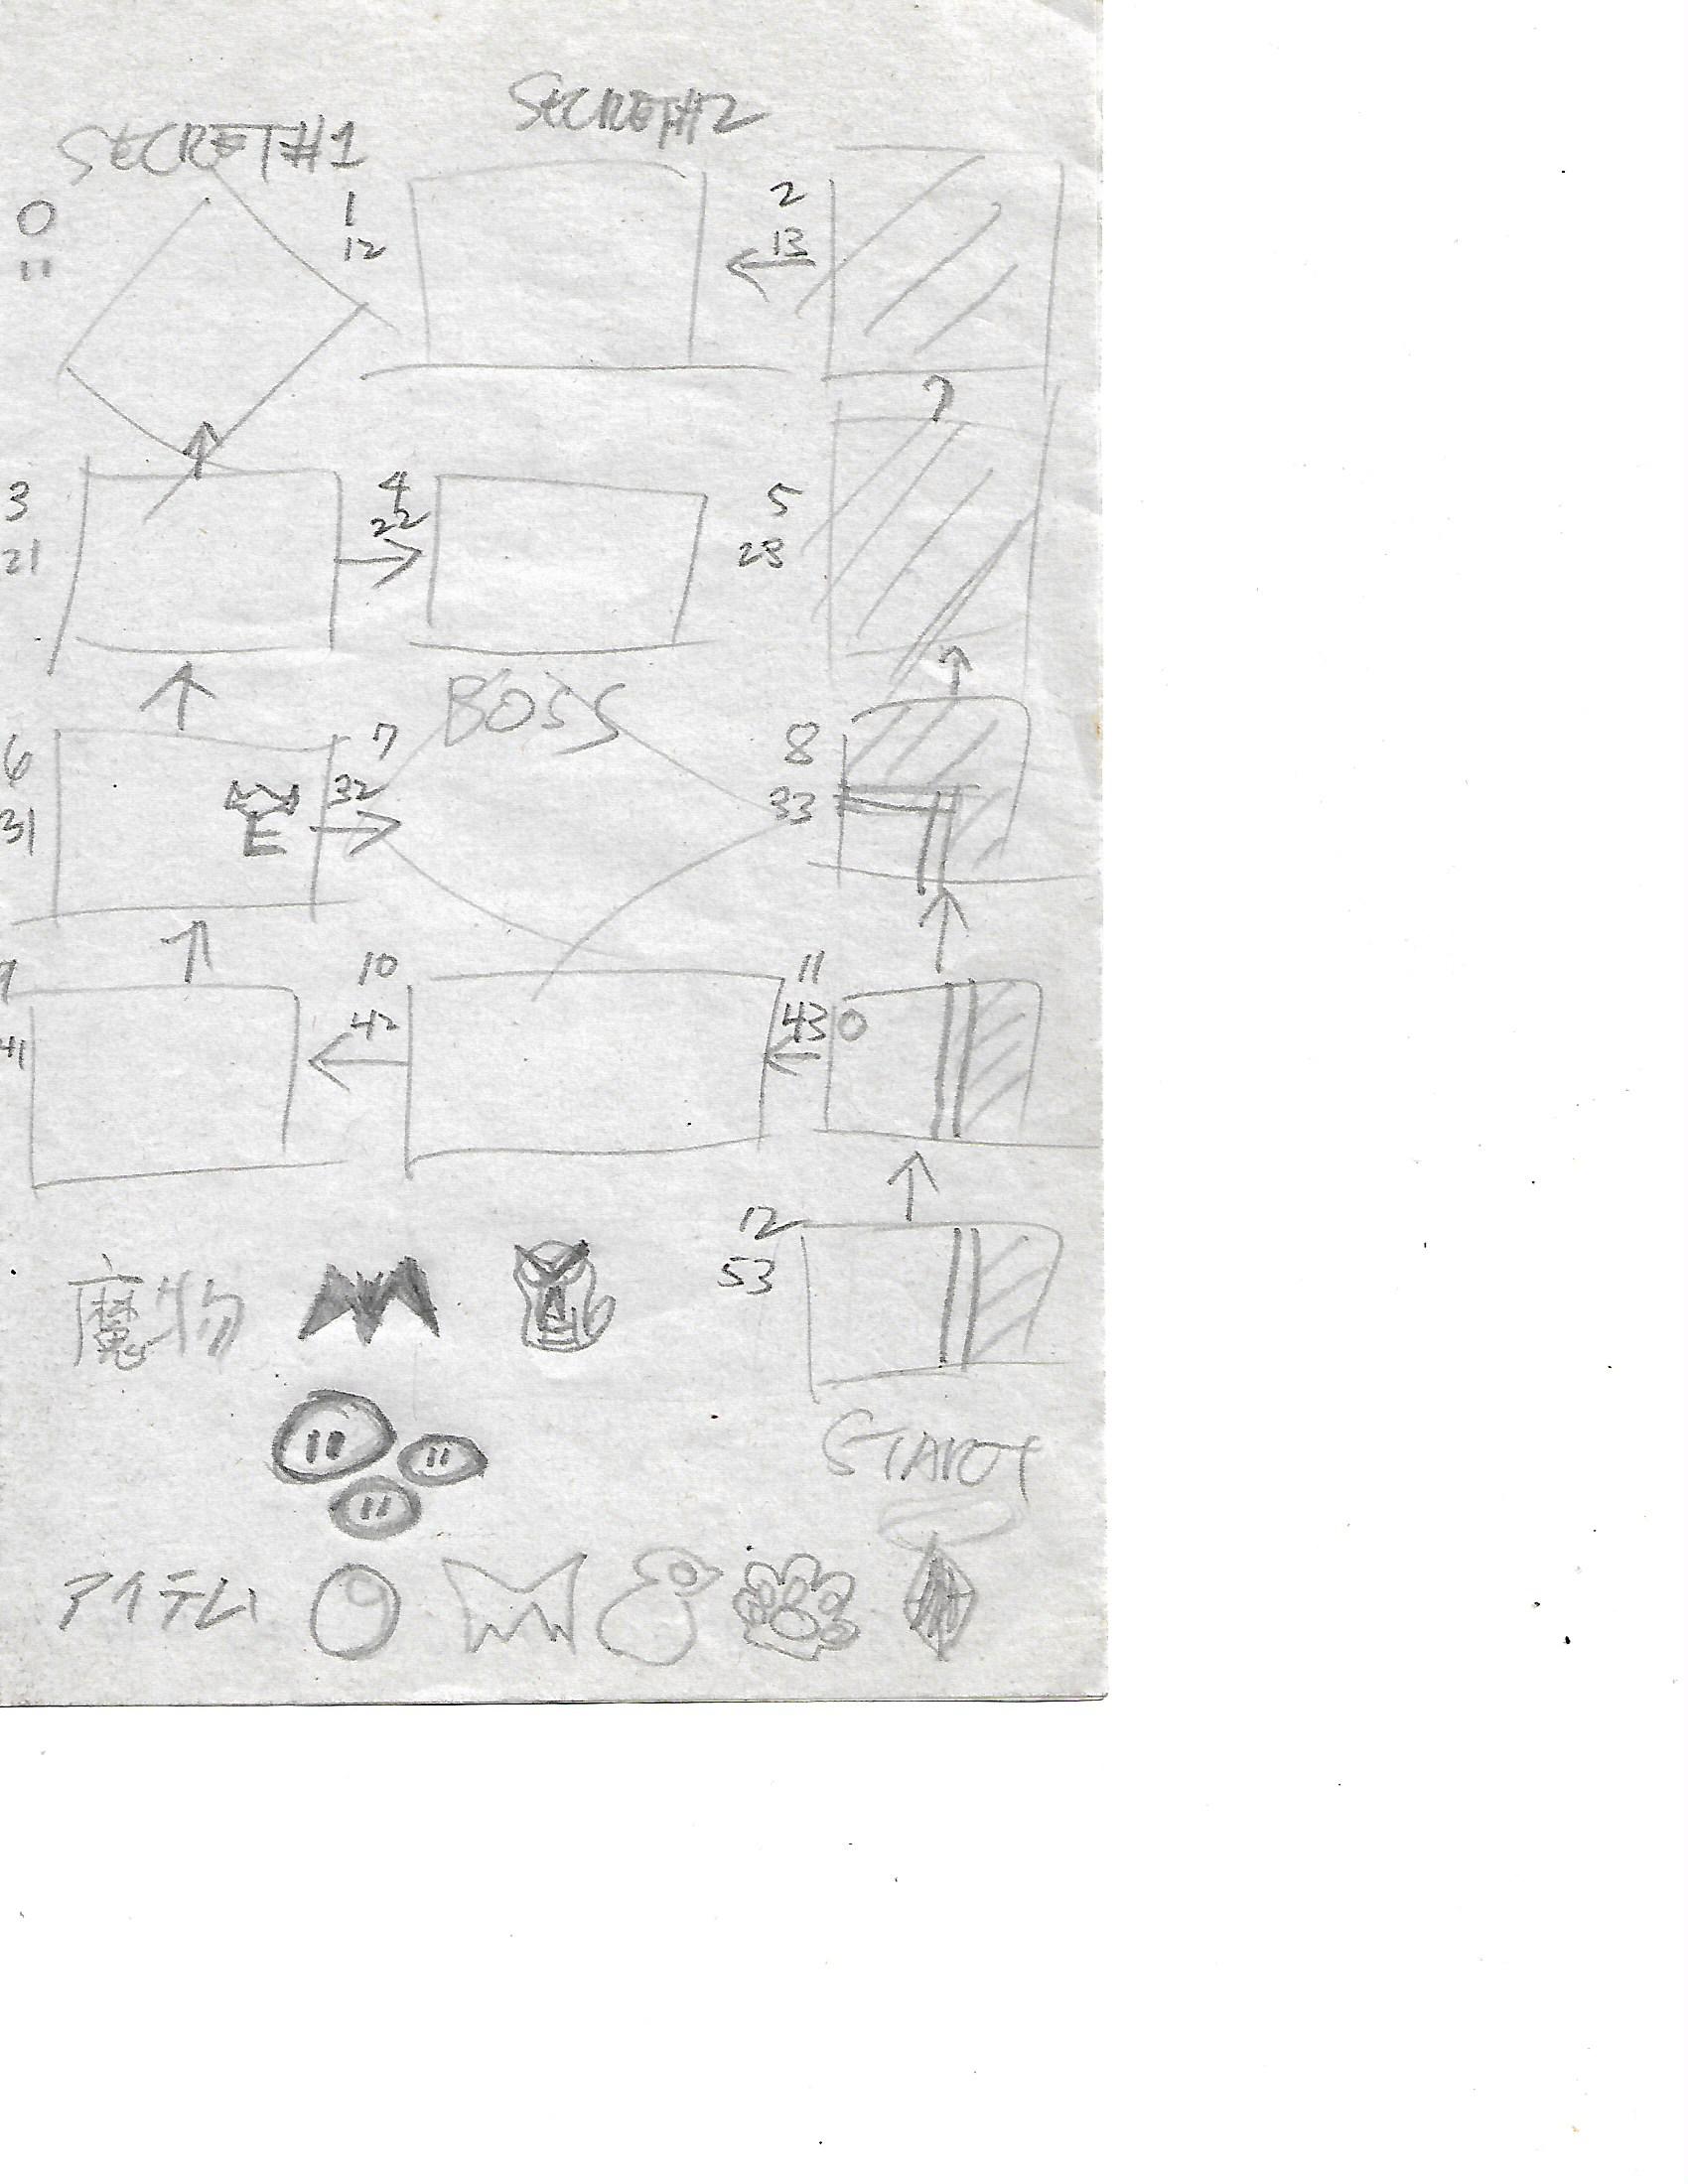 SECRET#2
SECRET#1
0
11
1
12
2
13
3
21
4
22
5
23
BOSS
6
31
7
32
8
33
E
10
42
11
43
41
12
53
魔物
START
アイテム